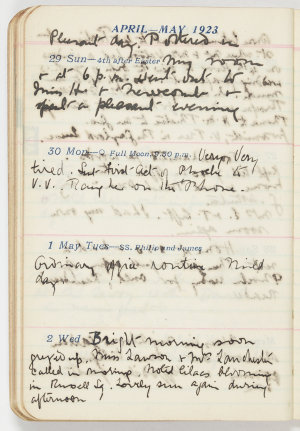 APRIL—MAY 1923
Pleasant day. Pottered in
29 Sun—4th after Easter my room
& at 6 p.m. went out to
Miss H's & Newcomb &
spent a pleasant evening
30 Mon—Full Moon, 9.30 p.m. Very, Very
tired. Sent first Act of to
V.V. Rang her on the Phone.
1 May Tues—SS. Philip and James
Ordinary office routine. Mild
day
2 Wed Bright morning soon
greyed up. Miss Lawson & Mrs Lanchester
called in morning. Noted lilacs blooming
in Russell Sq. Lovely sun again during
afternoon